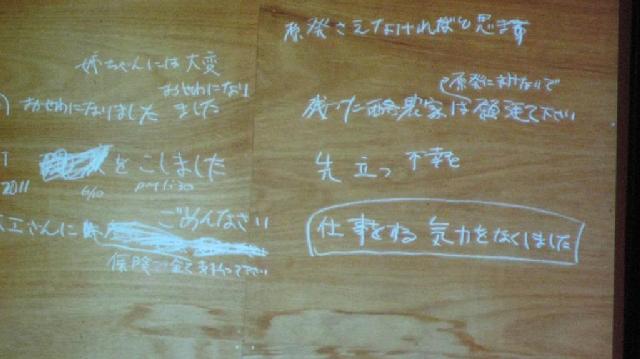 原発さえなければと思ます
残った酪農家は原発にまけないで頑張て下さい
先立つ不幸を
仕事をする気力をなくしました
姉ちゃんには大変おせわになりました
おせわになりました
2011 6/10 pm 1:30
をこしました
さんに
ごめんなさい
保険で全て支払って下さい